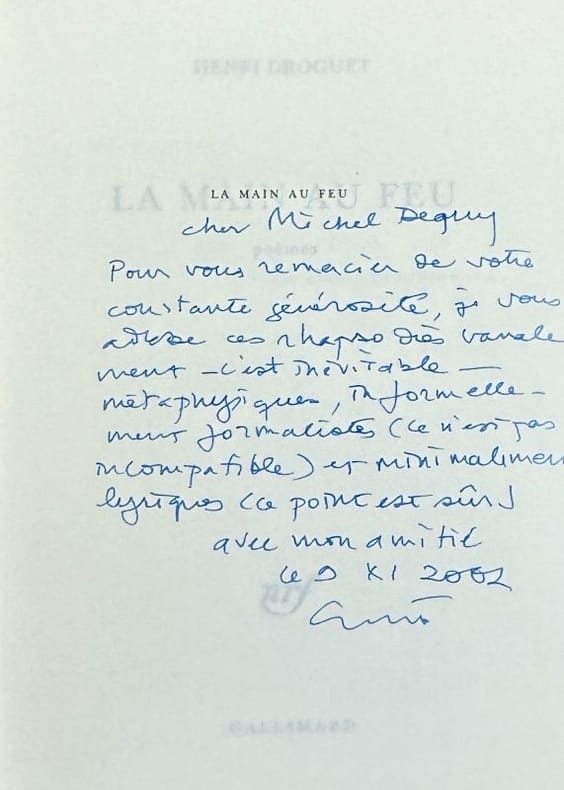 HENRI DROGUET
LA MAIN AU FEU
LA MAIN AU FEU
cher Michel Deguy
poèmes
Pour vous remercier de votre
constante générosité, je vous
adresse ces rhapsodies vanale
ment – c'est inévitable –
métaphysiques, informelle-
ment formalistes (ce n'est pas
incompatible) et minimalemen
lyriques (ce point est sûr)
avec mon amitié
le 9 XI 2002
nrf
GALLIMARD